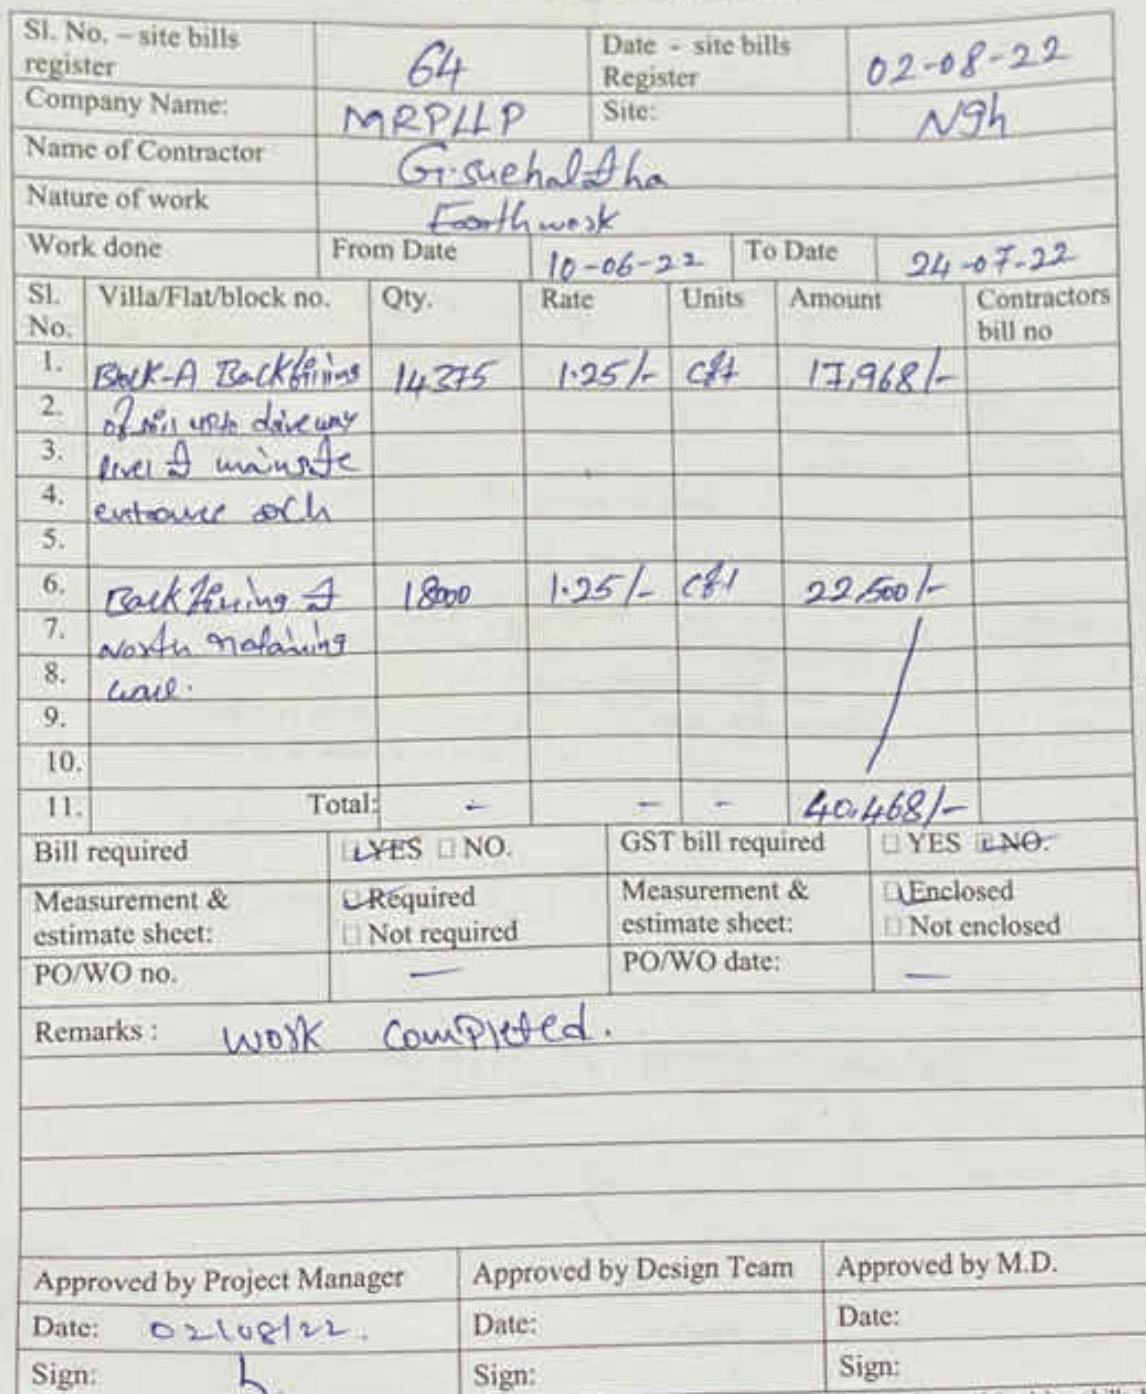 Sl. No. – site bills register 64 Date - site bills Register 02-08-22
Company Name: MRPLLP Site: Ngh
Name of Contractor G. Snehalatha
Nature of work Earth work
Work done From Date 10-06-22 To Date 24-07-22
Sl. No. Villa/Flat/block no. Qty. Rate Units Amount Contractors bill no
1. Block-A Backfilling 14375 1.25/- cft 17,968/-
2. of soil upto driveway
3. level at mainsite
4. entrance arch
5.
6. Backfilling at 18000 1.25/- cft 22,500/-
7. North retaining
8. wall.
9.
10.
11. Total: - - - 40,468/-
Bill required YES NO. GST bill required YES NO.
Measurement & estimate sheet: Required Measurement & estimate sheet: Enclosed
Not required Not enclosed
PO/WO no. — PO/WO date: —
Remarks : work completed.
Approved by Project Manager Approved by Design Team Approved by M.D.
Date: 02/08/22. Date: Date:
Sign: Sign: Sign: